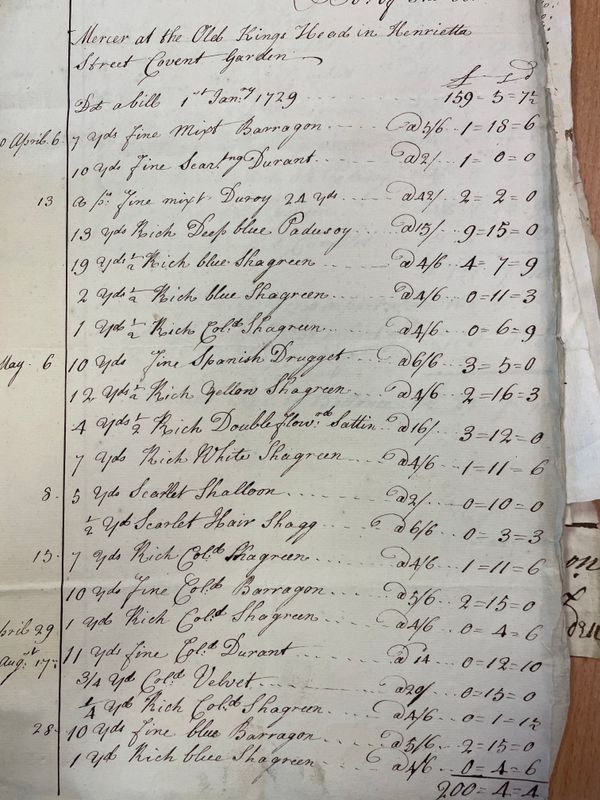 Mercer at the Old Kings Head in Henrietta
Street Covent Garden
£ s d
To a bill 1st Janry 1729 159=5=7½
April 6 7 Yds fine Mixt Barragon @5/6 1=18=6
10 Yds fine Durant @2/ 1=0=0
13 a ps fine mixt Duroy 24 yds @42/ 2=2=0
13 Yds Rich Deep blue Padusoy @15/ 9=15=0
19 Yds½ Rich blue Shagreen @4/6 4=7=9
2 Yds½ Rich blue Shagreen @4/6 0=11=3
1 Yd½ Rich Cold Shagreen @4/6 0=6=9
May 6 10 Yds fine Spanish Drugget @6/6 3=5=0
12 Yds½ Rich Yellow Shagreen @4/6 2=16=3
4 Yds½ Rich Double flowrd Sattin @16/ 3=12=0
7 Yds Rich White Shagreen @4/6 1=11=6
8 5 Yds Scarlet Shalloon @2/ 0=10=0
½ Yd Scarlet Hair Shagg @6/6 0=3=3
15 7 Yds Rich Cold Shagreen @4/6 1=11=6
10 Yds fine Cold Barragon @5/6 2=15=0
April 29 1 Yd Rich Cold Shagreen @4/6 0=4=6
Augst 17 11 Yds fine Cold Durant @14 0=12=10
3/4 Yd Cold Velvet @20/ 0=15=0
¼ Yd Rich Cold Shagreen @4/6 0=1=1½
28 10 Yds fine blue Barragon @5/6 2=15=0
1 Yd Rich blue Shagreen @4/6 0=4=6
200=4=4